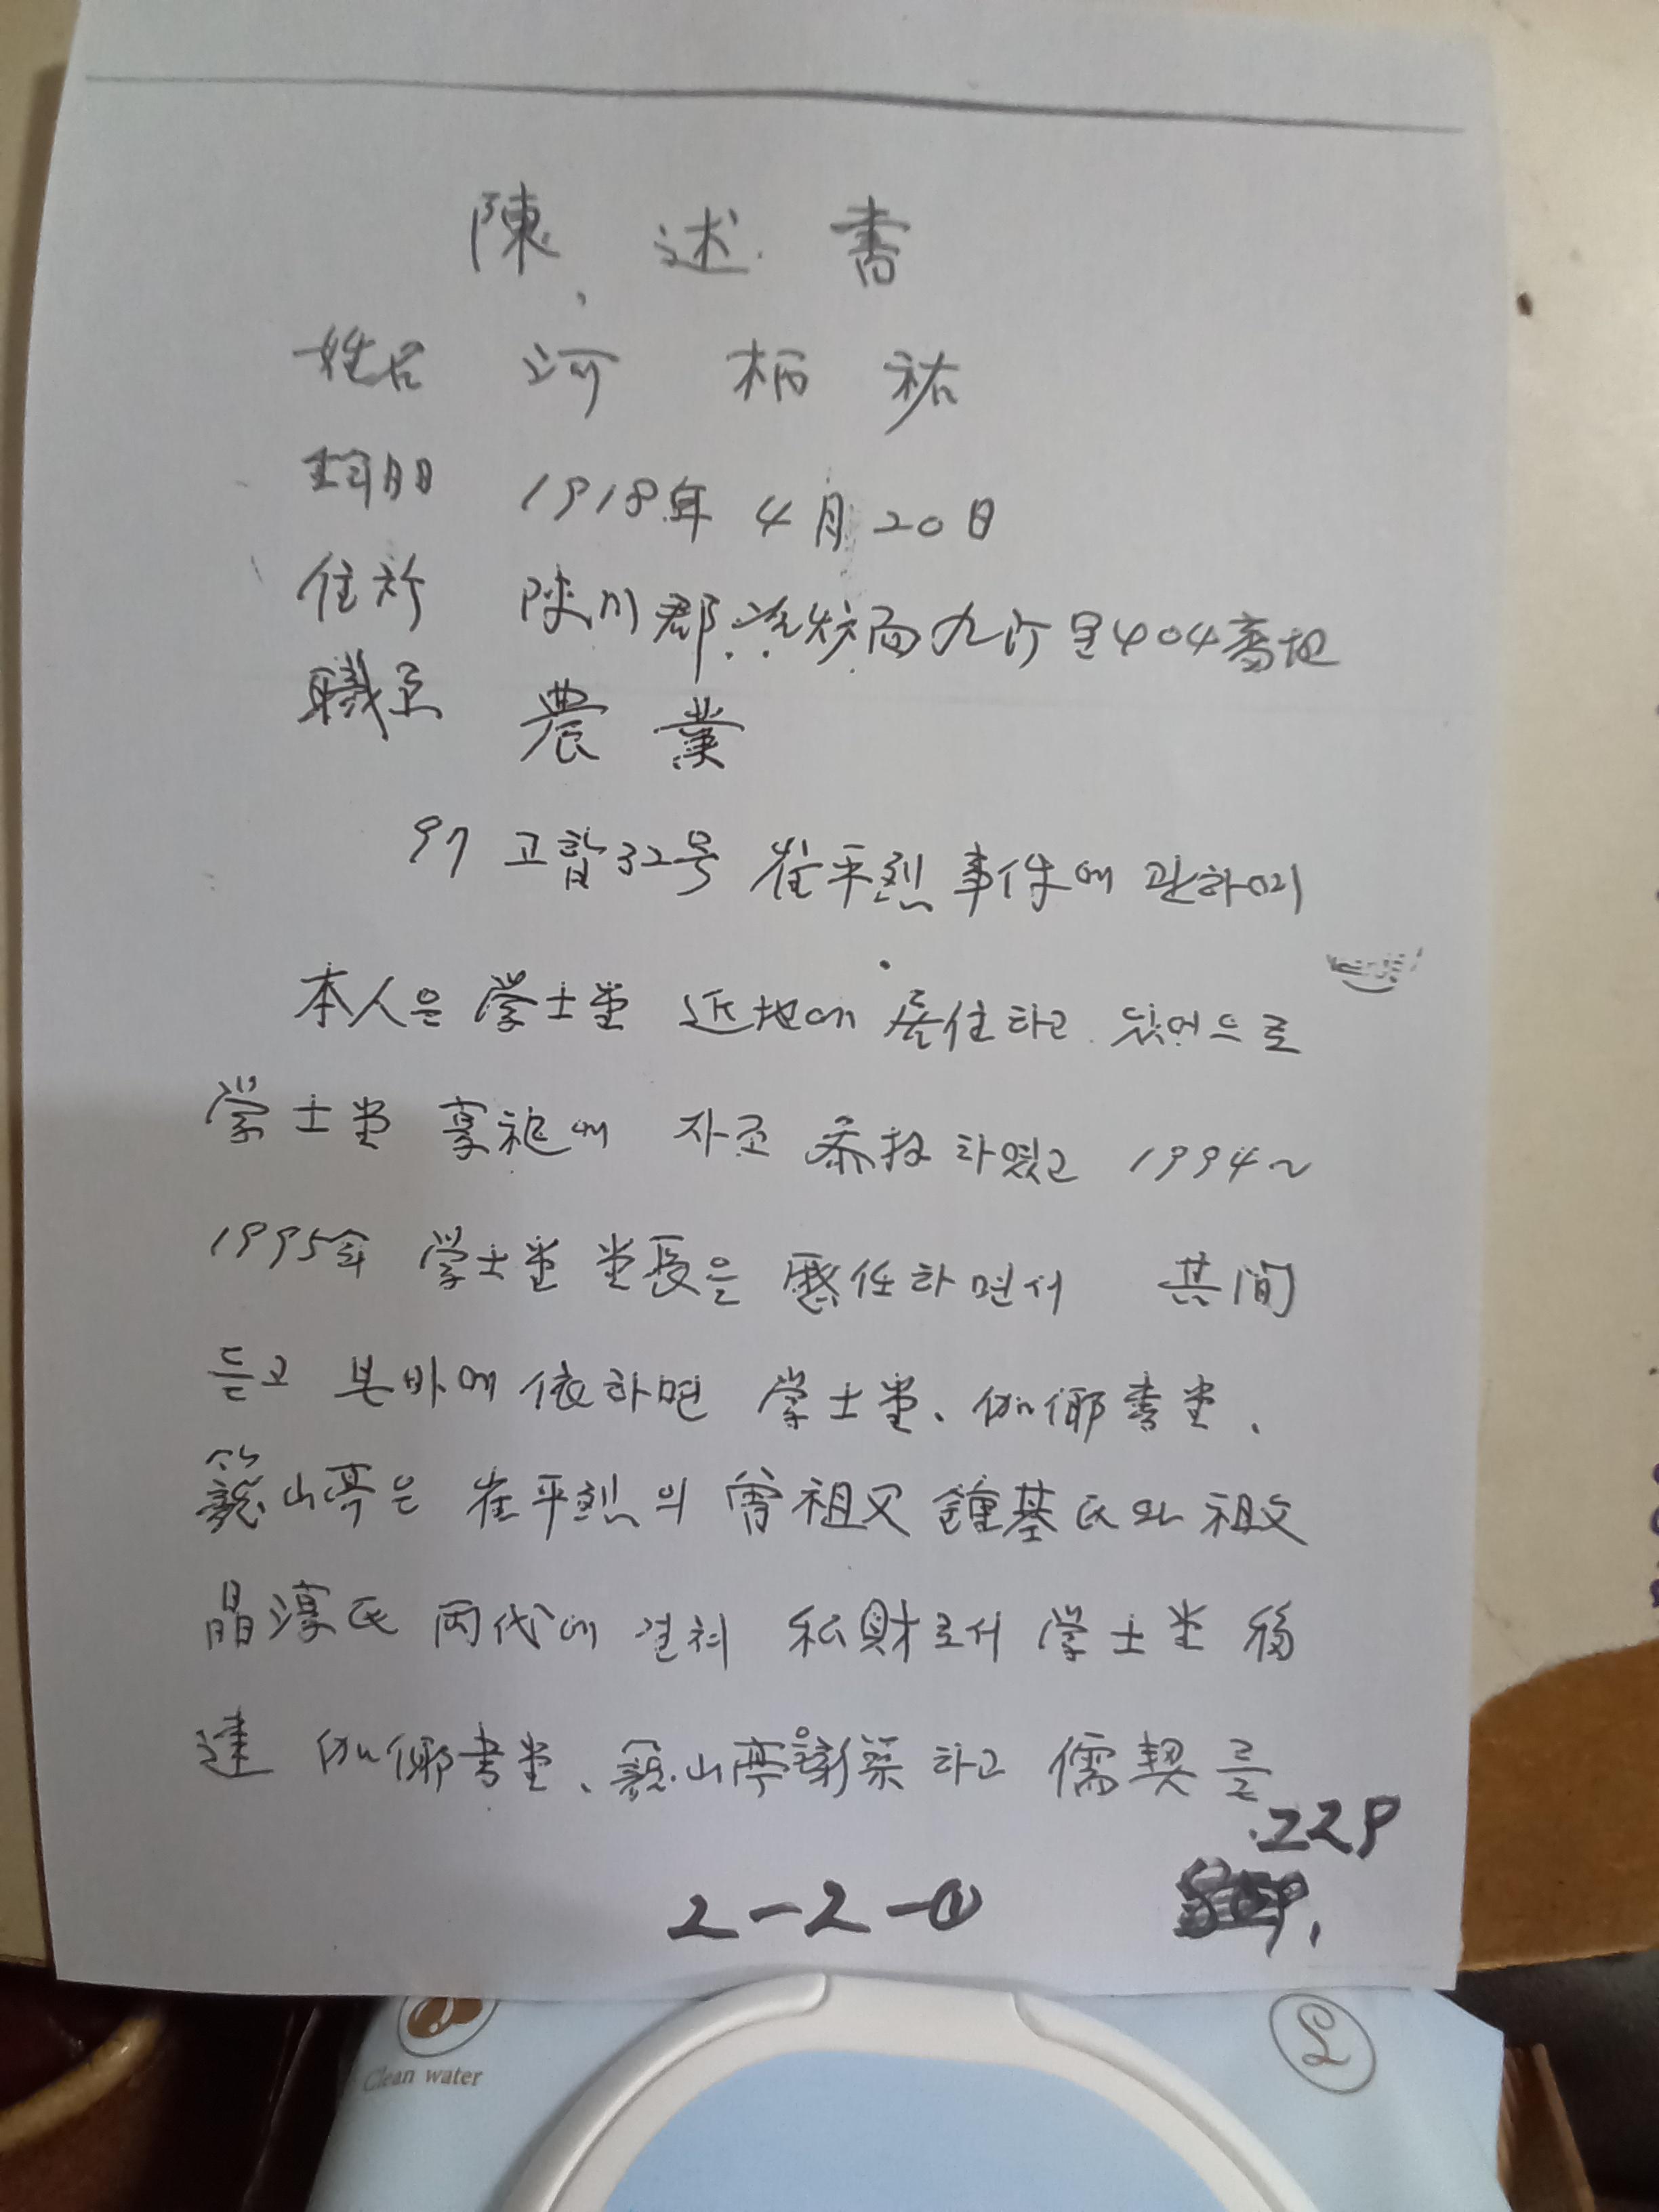 陳述書
姓名 河 柄 祐
1918年 4月 20日
住所 陜川郡 冶炉面 九汀里 404番地
職業 農業
97 고합32号 崔平烈 事件에 관하여
本人은 学士堂 近地에 居住하고 있으므로
学士堂 享祀에 자조 参拜하였고 1994~
1995年 学士堂 堂長을 歷任하면서 其間
듣고 본바에 依하면 学士堂、伽倻書堂、
籠山亭은 崔平烈의 曾祖父 鍾基氏와 祖父
晶淳氏 両代에 걸처 私財로서 学士堂 移
建 伽倻書堂、籠山亭을 新築하고 儒契를
229
2-2-①
Clean water